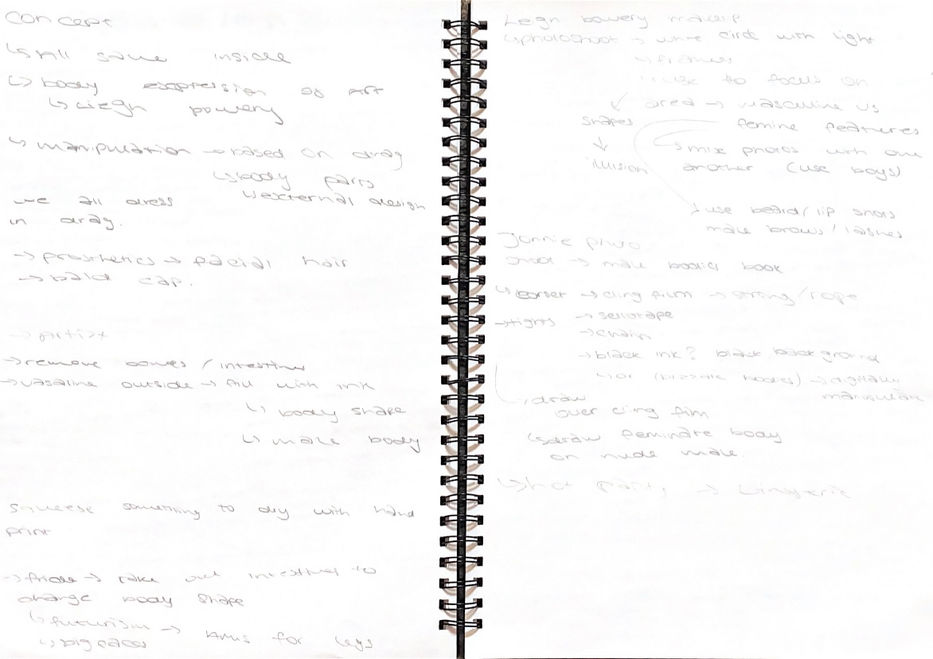 concept
↳ All same inside
↳ body expression as Art
↳ Liegh bowery
↳ manipulation → based on drag
↳ body parts
↳ external design
we all dress
in drag.
→ prosthetics → facial hair
→ bald cap.
→ remove bones / intestines
→ vaseline outside → fill with ink
↳ body shape
↳ male body
squeeze something to dry with hand
print
→ take out intestines to
change body shape
↳ futurism → Arms for legs
↳ big faces
Leign bowery makeup
↳ photoshoot → white circle with light
use to focus on
area → masculine vs
femine features
shapes
↓
illusion
↳ mix photos with one
another (use boys)
→ use beard / lip
make brows / lashes
shoot → make bodies book
↳ corset → cling film → string / rope
→ tights → sellotape
→ chain
→ black ink? black background
↳ or → digitally
manipulate
→ draw
over cling film
↳ draw feminate body
on nude male.